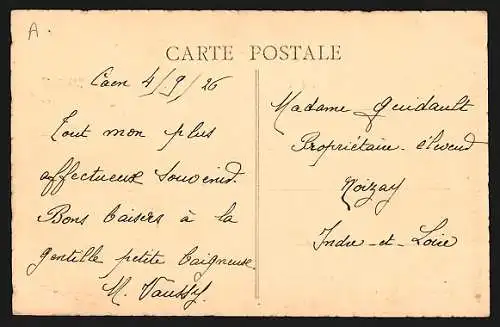 A
CARTE POSTALE
Caen 4/9/26
Tout mon plus
affectueux Souvenir.
Bons baisers à la
gentille petite baigneuse.
M. Vaussy.
Madame Guidault
Propriétaire - éleveur
Noizay
Indre-et-Loire